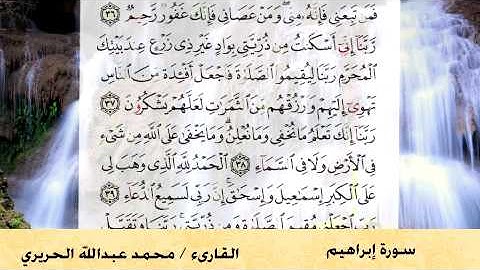 فَمَن تَبِعَنِى فَإِنَّهُۥ مِنِّى وَمَنْ عَصَانِى فَإِنَّكَ غَفُورٌ رَّحِيمٌ ٣٦
رَّبَّنَآ إِنِّىٓ أَسْكَنتُ مِن ذُرِّيَّتِى بِوَادٍ غَيْرِ ذِى زَرْعٍ عِندَ بَيْتِكَ
الْمُحَرَّمِ رَبَّنَا لِيُقِيمُوا۟ الصَّلَوٰةَ فَاجْعَلْ أَفْـِٔدَةً مِّنَ النَّاسِ
تَهْوِىٓ إِلَيْهِمْ وَارْزُقْهُم مِّنَ الثَّمَرَٰتِ لَعَلَّهُمْ يَشْكُرُونَ ٣٧
رَبَّنَآ إِنَّكَ تَعْلَمُ مَا نُخْفِى وَمَا نُعْلِنُ وَمَا يَخْفَىٰ عَلَى اللَّهِ مِن شَىْءٍ
فِى الْأَرْضِ وَلَا فِى السَّمَآءِ ٣٨ الْحَمْدُ لِلَّهِ الَّذِى وَهَبَ لِى
عَلَى الْكِبَرِ إِسْمَٰعِيلَ وَإِسْحَٰقَ إِنَّ رَبِّى لَسَمِيعُ الدُّعَآءِ ٣٩
رَبِّ اجْعَلْنِى مُقِيمَ الصَّلَوٰةِ وَمِن ذُرِّيَّتِى رَبَّنَا وَتَقَبَّلْ
سورة إبراهيم
القارىء / محمد عبدالله الحريري